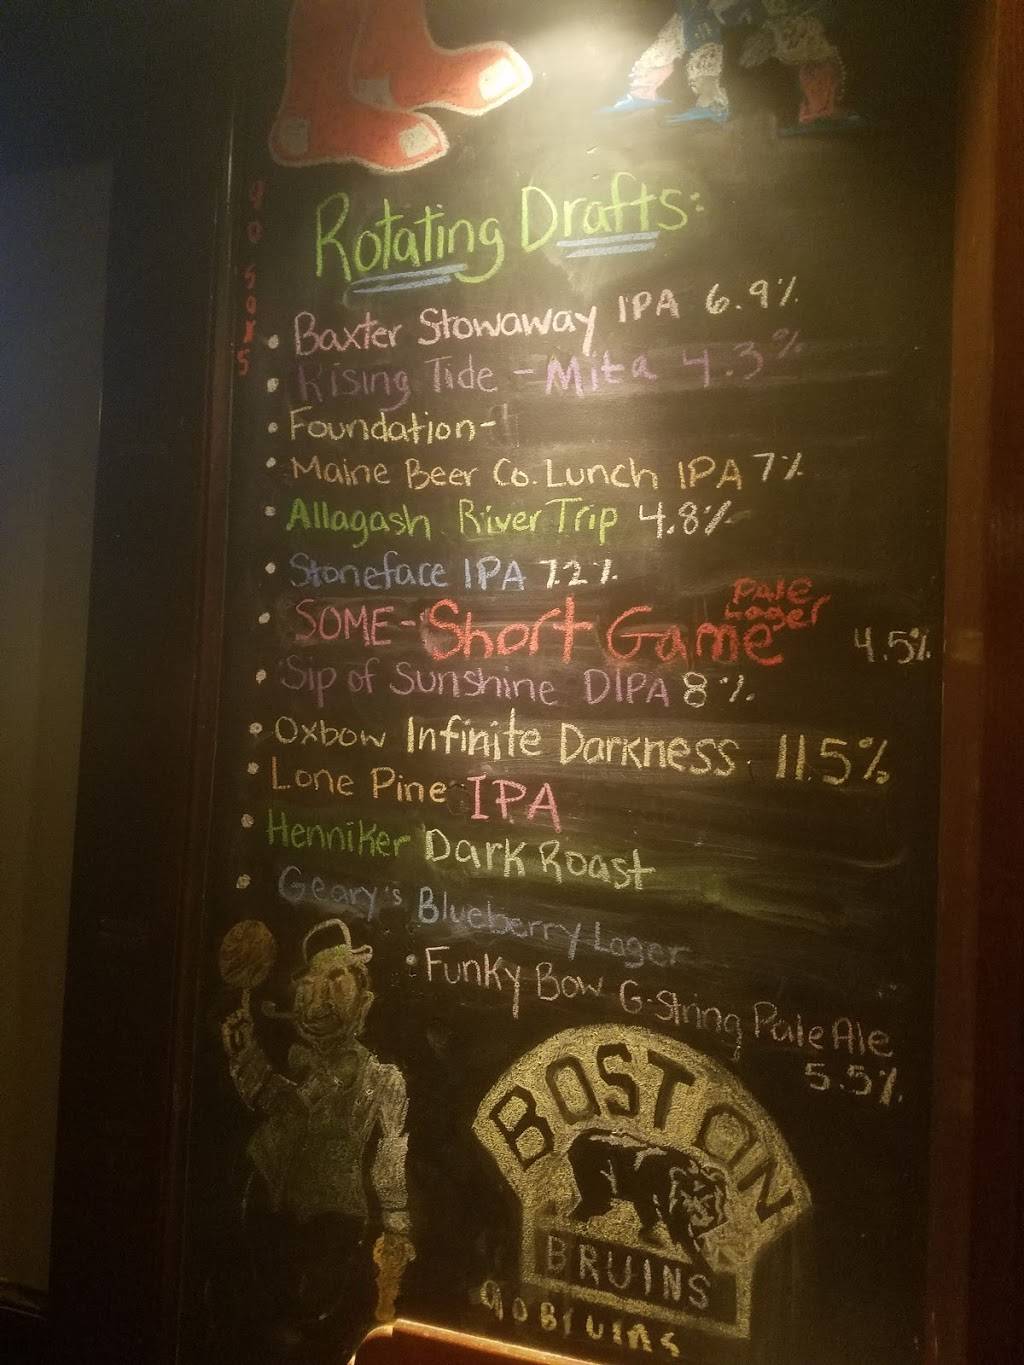 Rotating Drafts:
go sox
• Baxter Stowaway IPA 6.9%
• Rising Tide - Mita 4.3%
• Foundation-
• Maine Beer Co. Lunch IPA 7%
• Allagash River Trip 4.8%
• Stoneface IPA 7.2%
• SOME - Short Game Pale Lager 4.5%
• Sip of Sunshine DIPA 8%
• Oxbow Infinite Darkness. 11.5%
• Lone Pine IPA
• Henniker Dark Roast
• Geary's Blueberry Lager
• Funky Bow G-string Pale Ale
5.5%
BOSTON
BRUINS
go Bruins